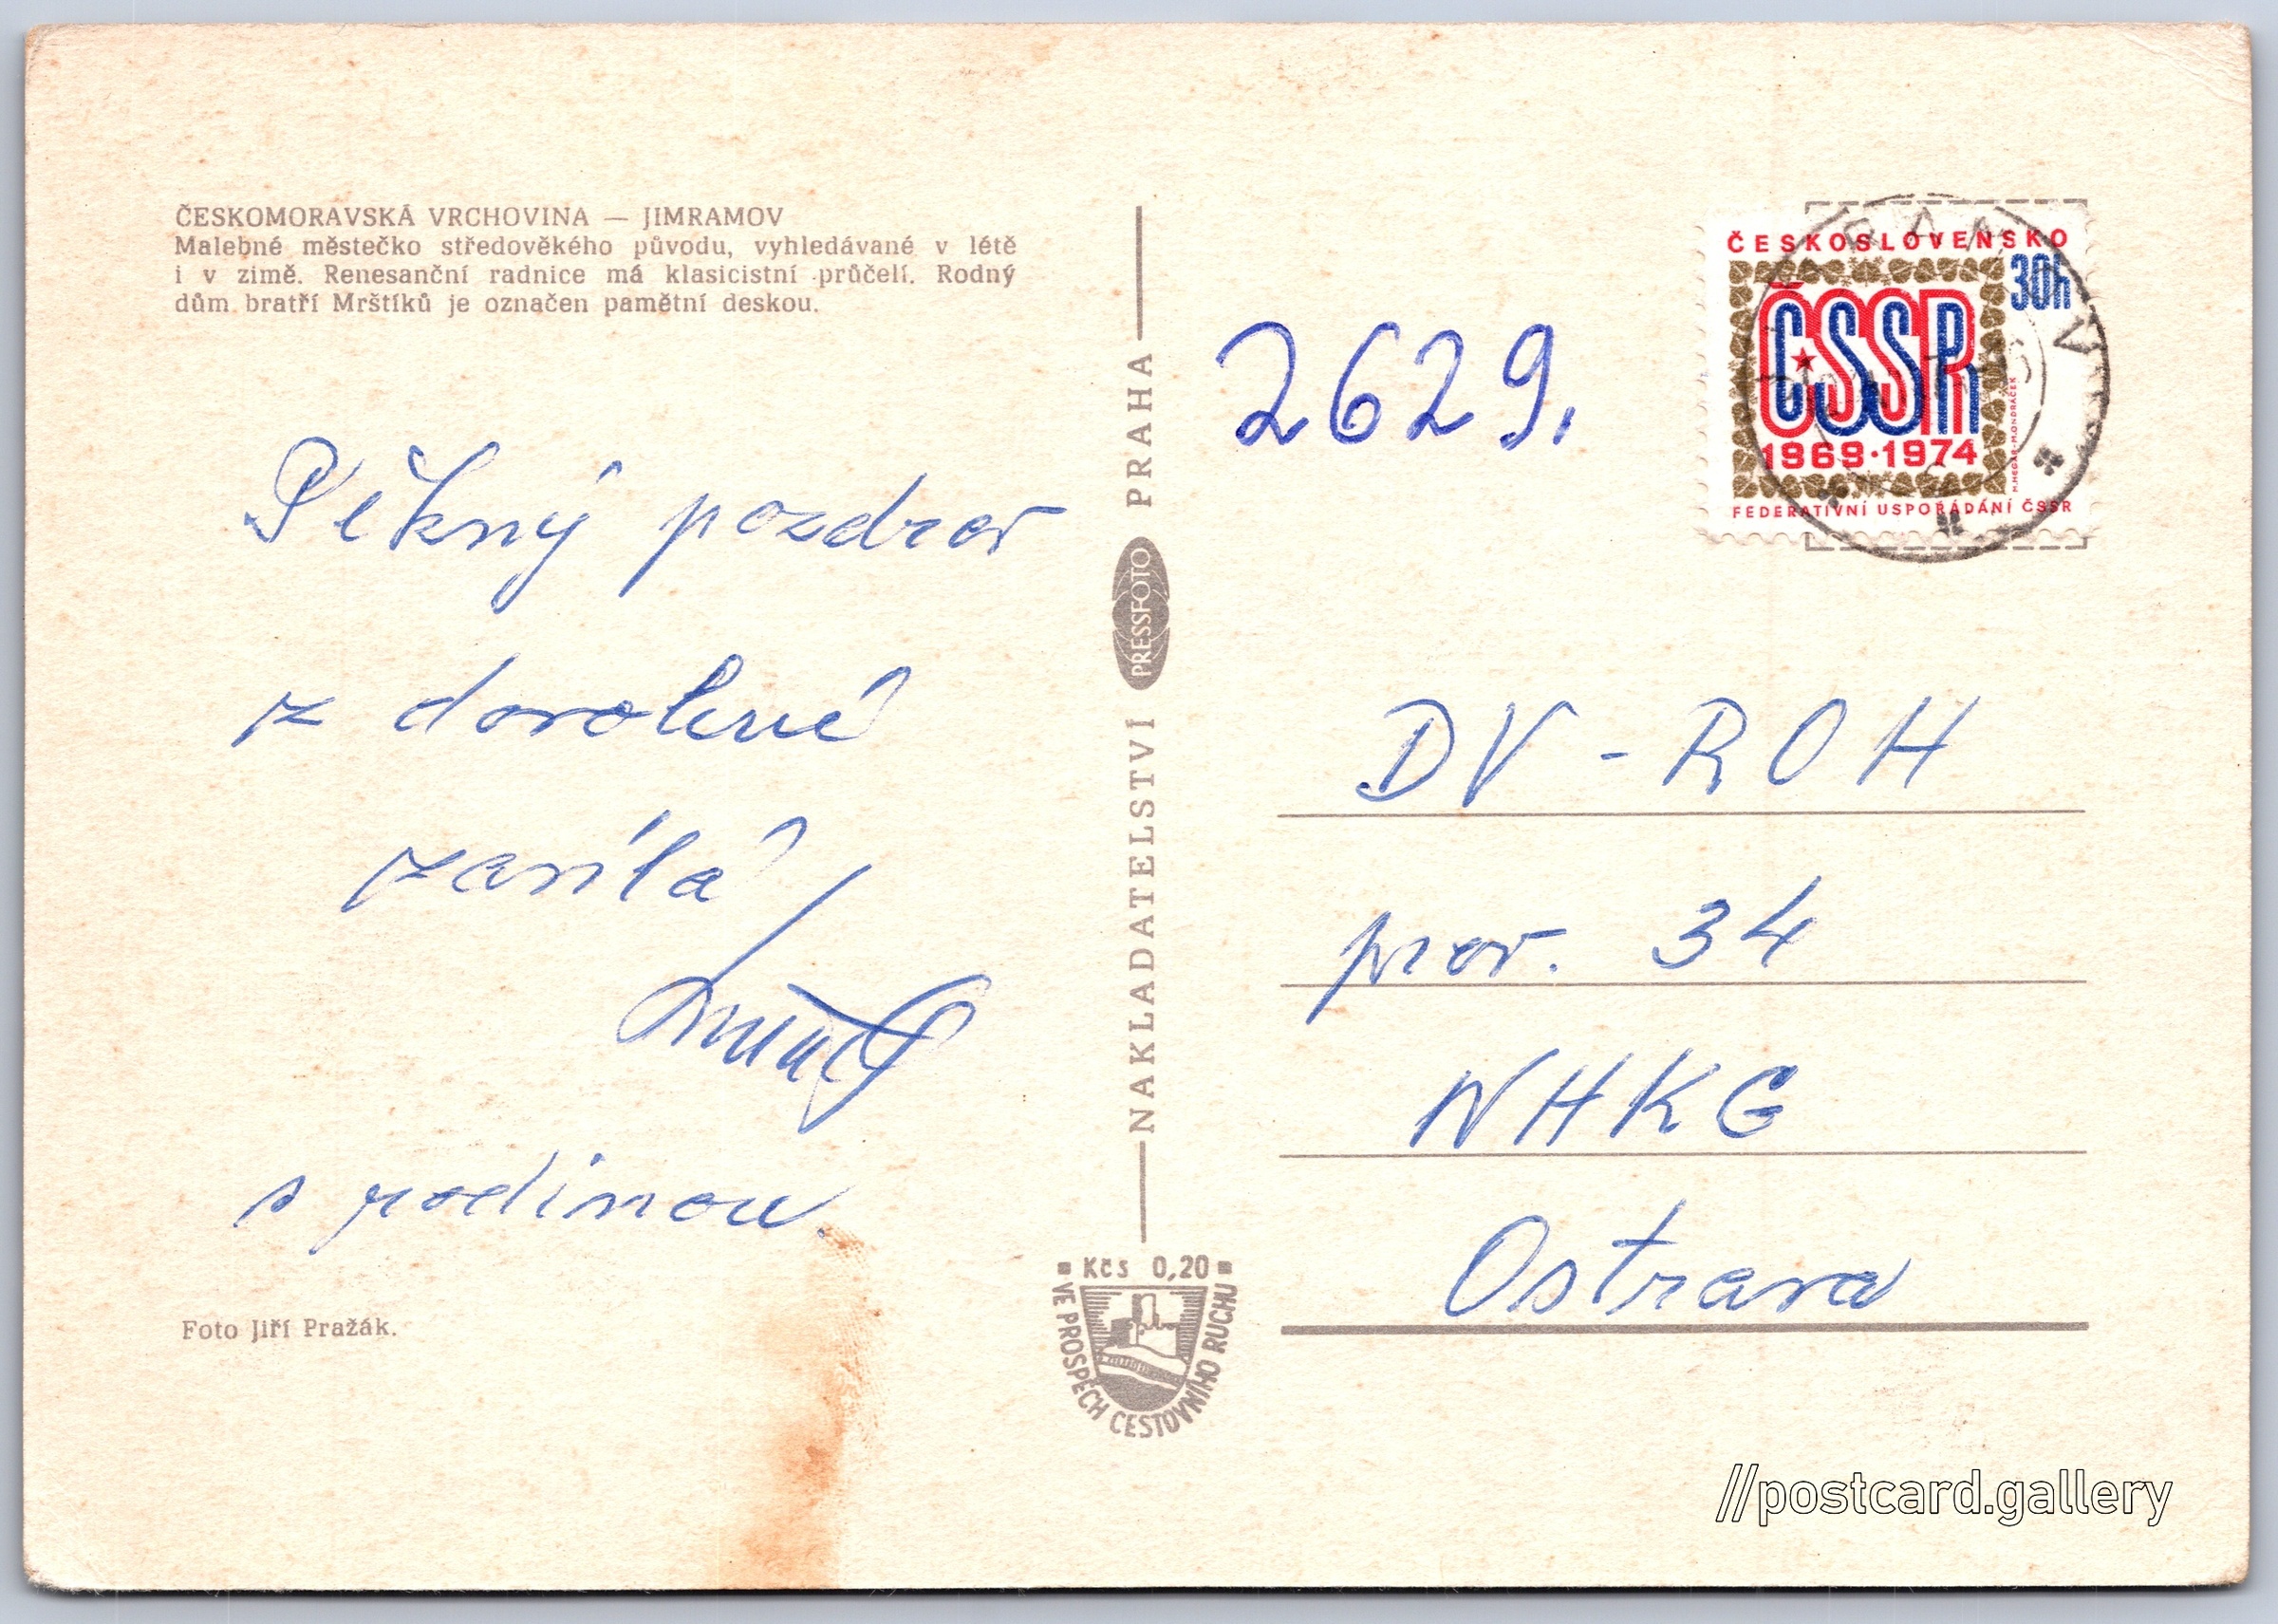 ČESKOMORAVSKÁ VRCHOVINA — JIMRAMOV
Malebné městečko středověkého původu, vyhledávané v létě
i v zimě. Renesanční radnice má klasicistní průčelí. Rodný
dům bratří Mrštíků je označen pamětní deskou.
Pěkný pozdrav
z dovolené
zasílá
s rodinou.
Foto Jiří Pražák.
NAKLADATELSTVÍ PRESSFOTO PRAHA
Kčs 0,20
VE PROSPĚCH CESTOVNÍHO RUCHU
2629.
ČESKOSLOVENSKO
30h
ČSSR
1969·1974
FEDERATIVNÍ USPOŘÁDÁNÍ ČSSR
DV - ROH
prov. 34
NHKG
Ostrava
//postcard.gallery